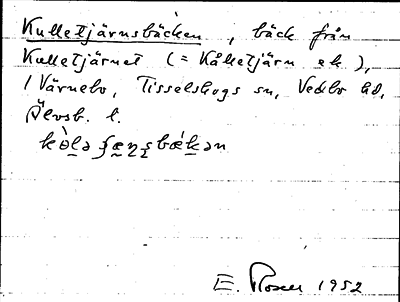 Kulletjärnsbäcken, bäck från
Kulletjärnet (= Kålletjärn ek.),
i Värnebo, Tisselskogs sn, Vedbo hd,
Älvsb. l.
E. Rosen 1952